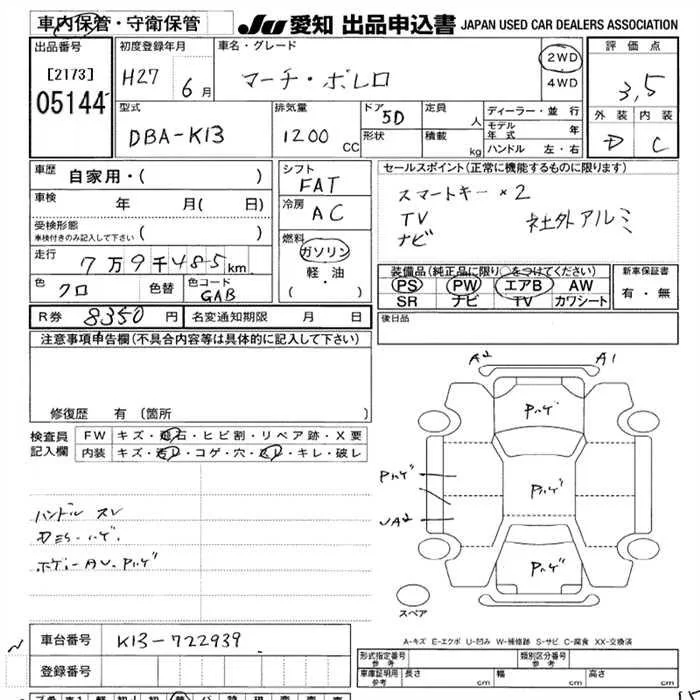 車内保管・守衛保管 JU 愛知 出品申込書 JAPAN USED CAR DEALERS ASSOCIATION
出品番号 [2173] 05144
初度登録年月 H27 6月
車名・グレード マーチ・ボレロ
2WD
4WD
評価点 3,5
型式 DBA-K13
排気量 1200 CC
ドア 5D
形状
定員 人
積載 kg
ディーラー・並行
モデル年式 年
ハンドル 左・右
外装 D
内装 C
車歴 自家用・( )
車検 年 月( 日)
受検形態
車検付きのみ記入して下さい ( )
走行 7万9千485km
色 クロ 色替 色コード GAB
シフト FAT
冷房 AC
燃料 ガソリン
軽・油
( ・ )
セールスポイント(正常に機能するものに限ります)
スマートキー×2
TV 社外アルミ
ナビ
装備品(純正品に限り○をつけてください)
PS PW エアB AW
SR ナビ TV カワシート
新車保証書
有・無
R券 8350円 名変通知期限 月 日
後日品
注意事項申告欄(不具合内容等は具体的に記入して下さい)
修復歴 有(箇所 )
検査員記入欄
FW キズ・飛石・ヒビ割・リペア跡・X要
内装 キズ・汚レ・コゲ・穴・スレ・キレ・破レ
ハンドル スレ
ボディーAU.Pハゲ
A2 A1
Pハゲ
Pハゲ
Pハゲ
UA2
Pハゲ
スペア
A-キズ E-エクボ U-凹み W-補修跡 S-サビ C-腐食 XX-交換済
車台番号 K13-722939
登録番号
形式指定番号 参考
類別区分番号 参考
車庫証明用 参考 長さ cm 幅 cm 高さ cm